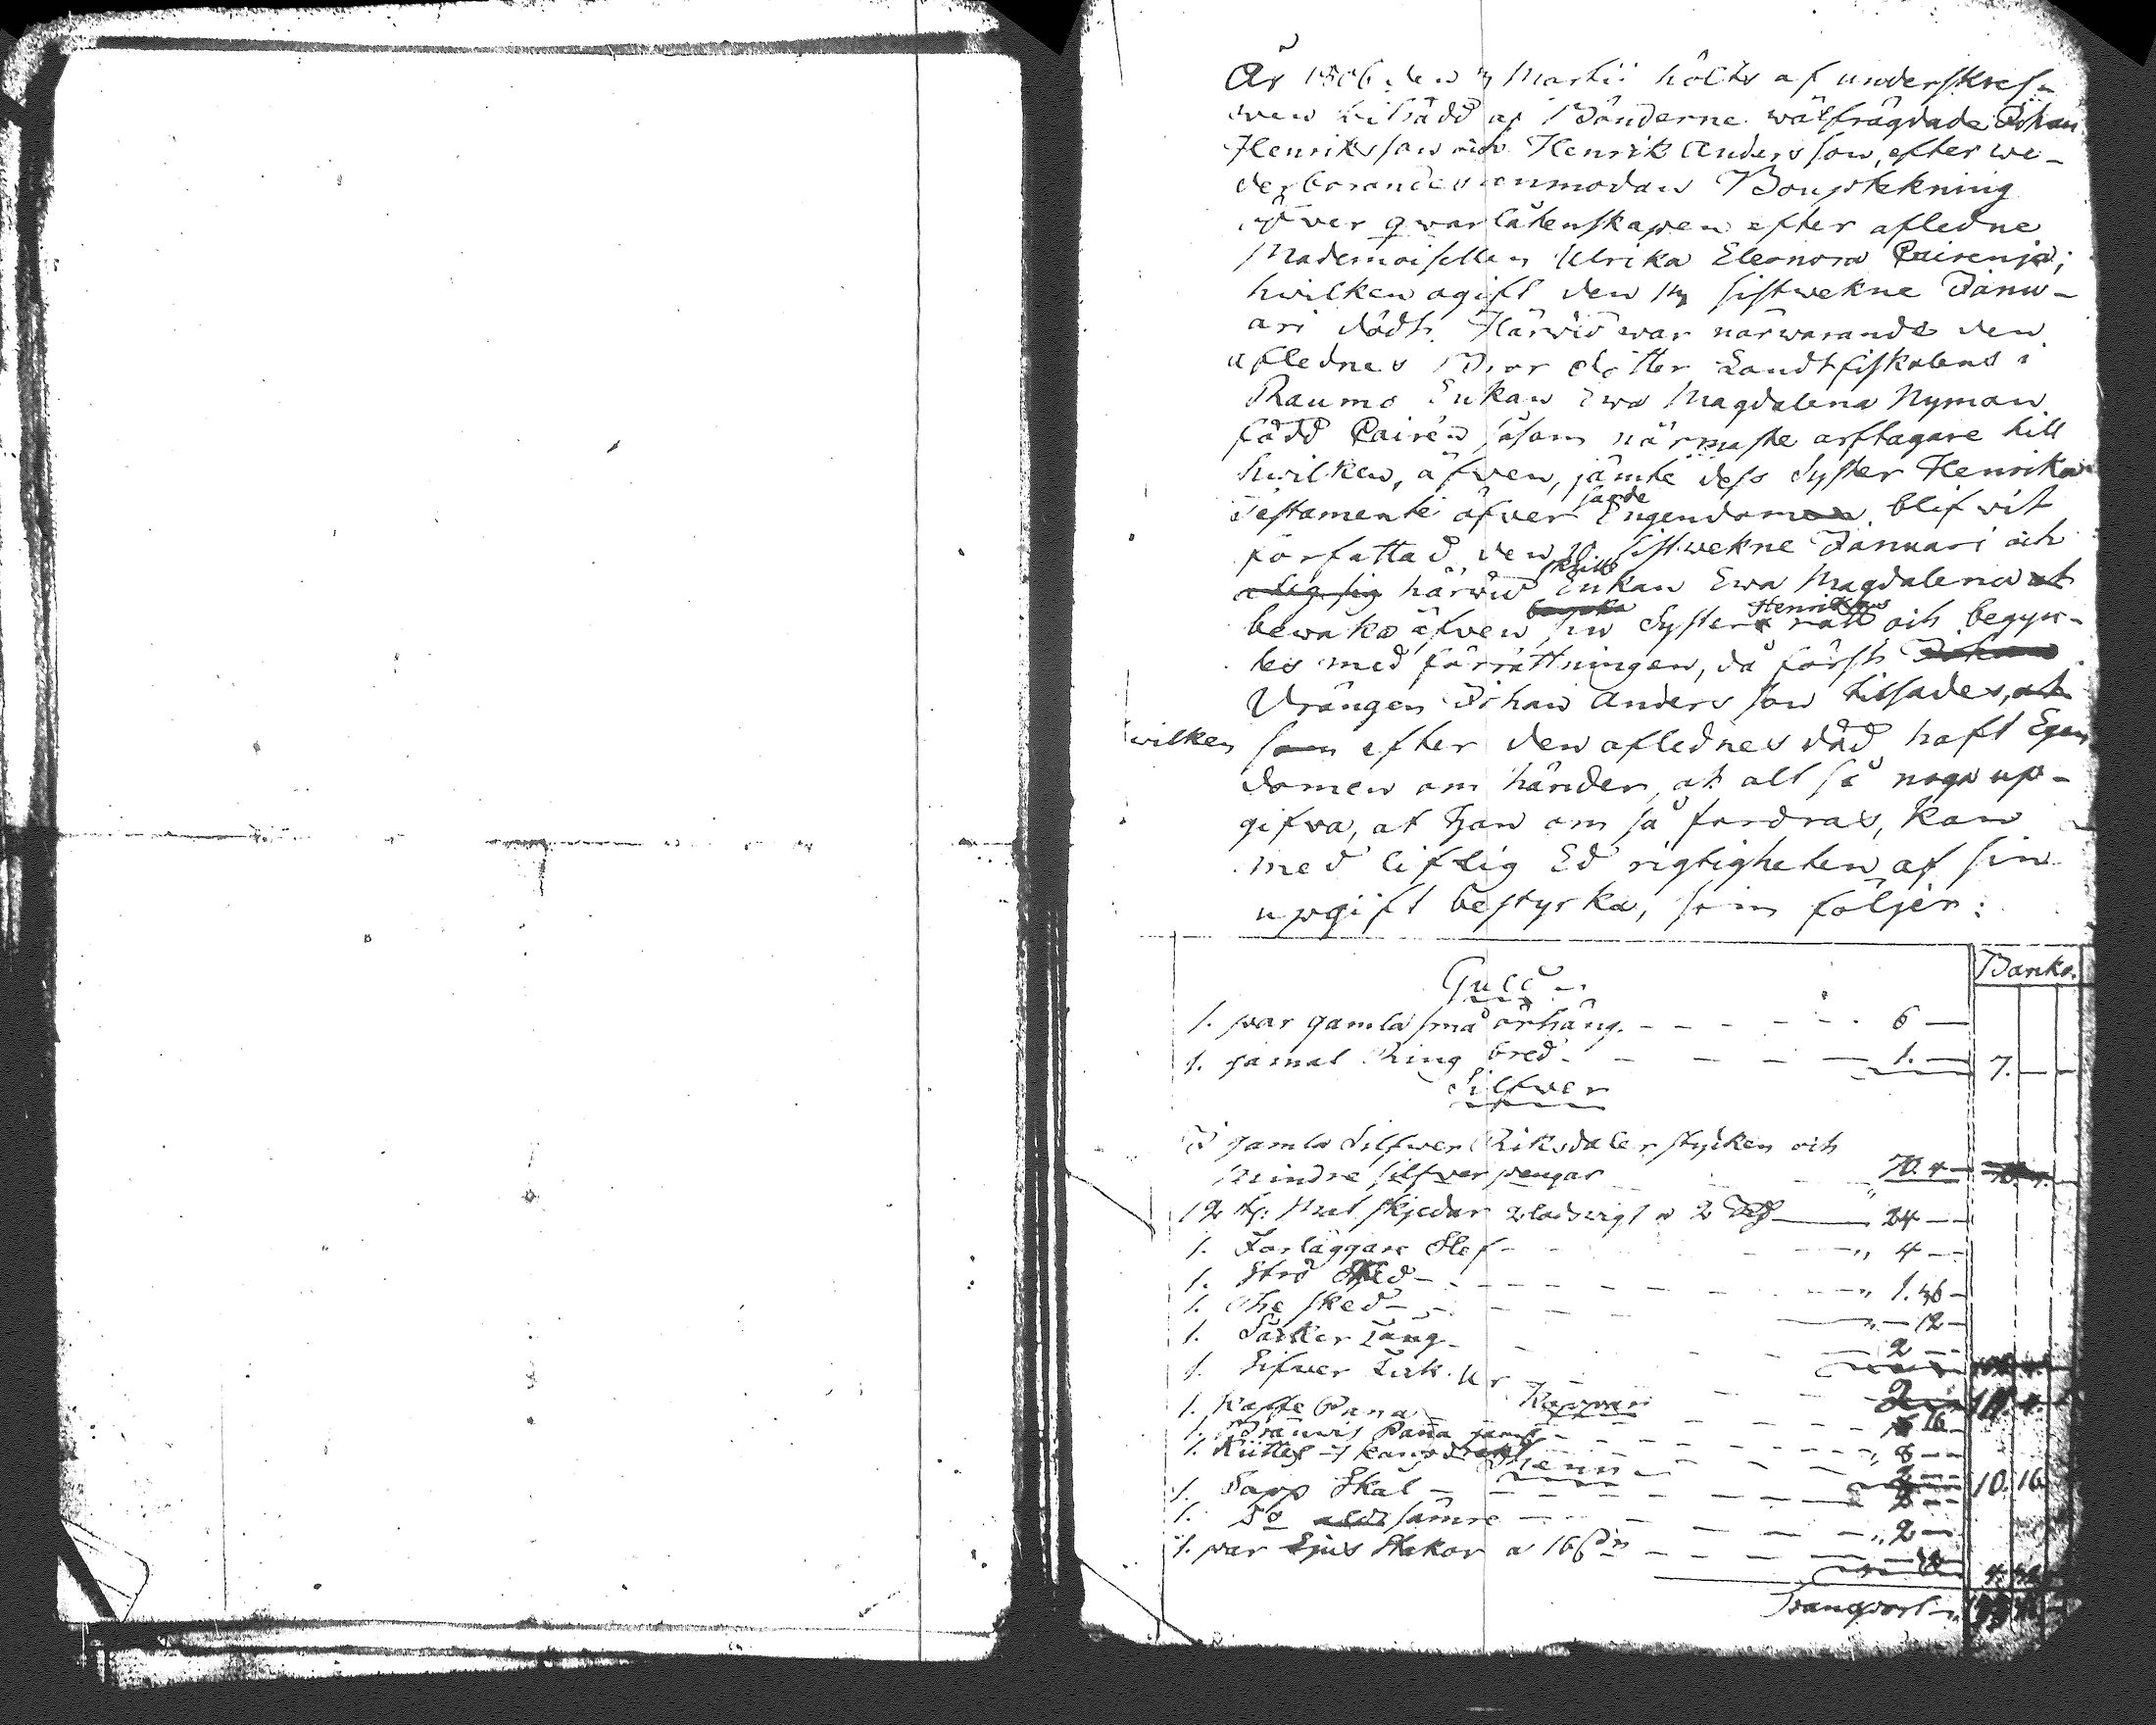 År 1806 den 3 Martii hölts af underskref-
wen biträdd af Bönderne wälfrägdade Johan
Henriksson och Henrik Andersson, efter we-
derbörandes anmodan Boupptekning
öfver qwarlåtenskapen efter afledne
Mademoisellen Ulrika Eleonora Pairenia;
hwilken ogift den 14 sistwekne Janu-
ari dödt. Härwid war närwarande den
aflednes Bror dotter Landtfiskalens i
Raumo Enkan Ewa Magdalena Nyman
född Pairén såsom närmaste arftagare till
hwilken, äfwen, jämte dess Syster Henrika
Testamente öfver sagde Engendomen blifwit
författad den 20 sistwekne Januari och
härwid skulle Enkan Ewa Magdalena at
bewaka äfwen sin Syster Henrikas rätt och begyn-
tes med förrättningen, då först Johan
Drängen Johan Andersson tilsades, at
hwilken som efter den aflednes död haft Egen
domen om händer, at alt så noga up-
gifva, at Han om så fordras, kan
med liflig Ed rigtigheten af sin
upgift bestyrka, som följer:
Banko.
Guld
1. par gamla små örhäng. 6 —
1. gamal Ring bred 1. — 7. —
Silfwer
I gamla Silfwer Riksdaler stycken och
mindre silfver pengar 70. 4 —
12 st: Mat skjedar 2 lods wigt a 2 Rd 24 —
1. Förläggare Slef " 4 —
1. Strö Sked " 1. 36 —
1. The sked " — 12 —
1. Såcker Tång 2 —
1. Silfwer Fick. Ur
Koppar
1. Kaffe Pana 16
1. Bränwis Pana gamal " 8 —
1. Kittel 2 — 10. 16
Tenn
1. Sapp Skål
1. Do sämre " 2 —
1. par Ljus Stakar a 16 s
Transport